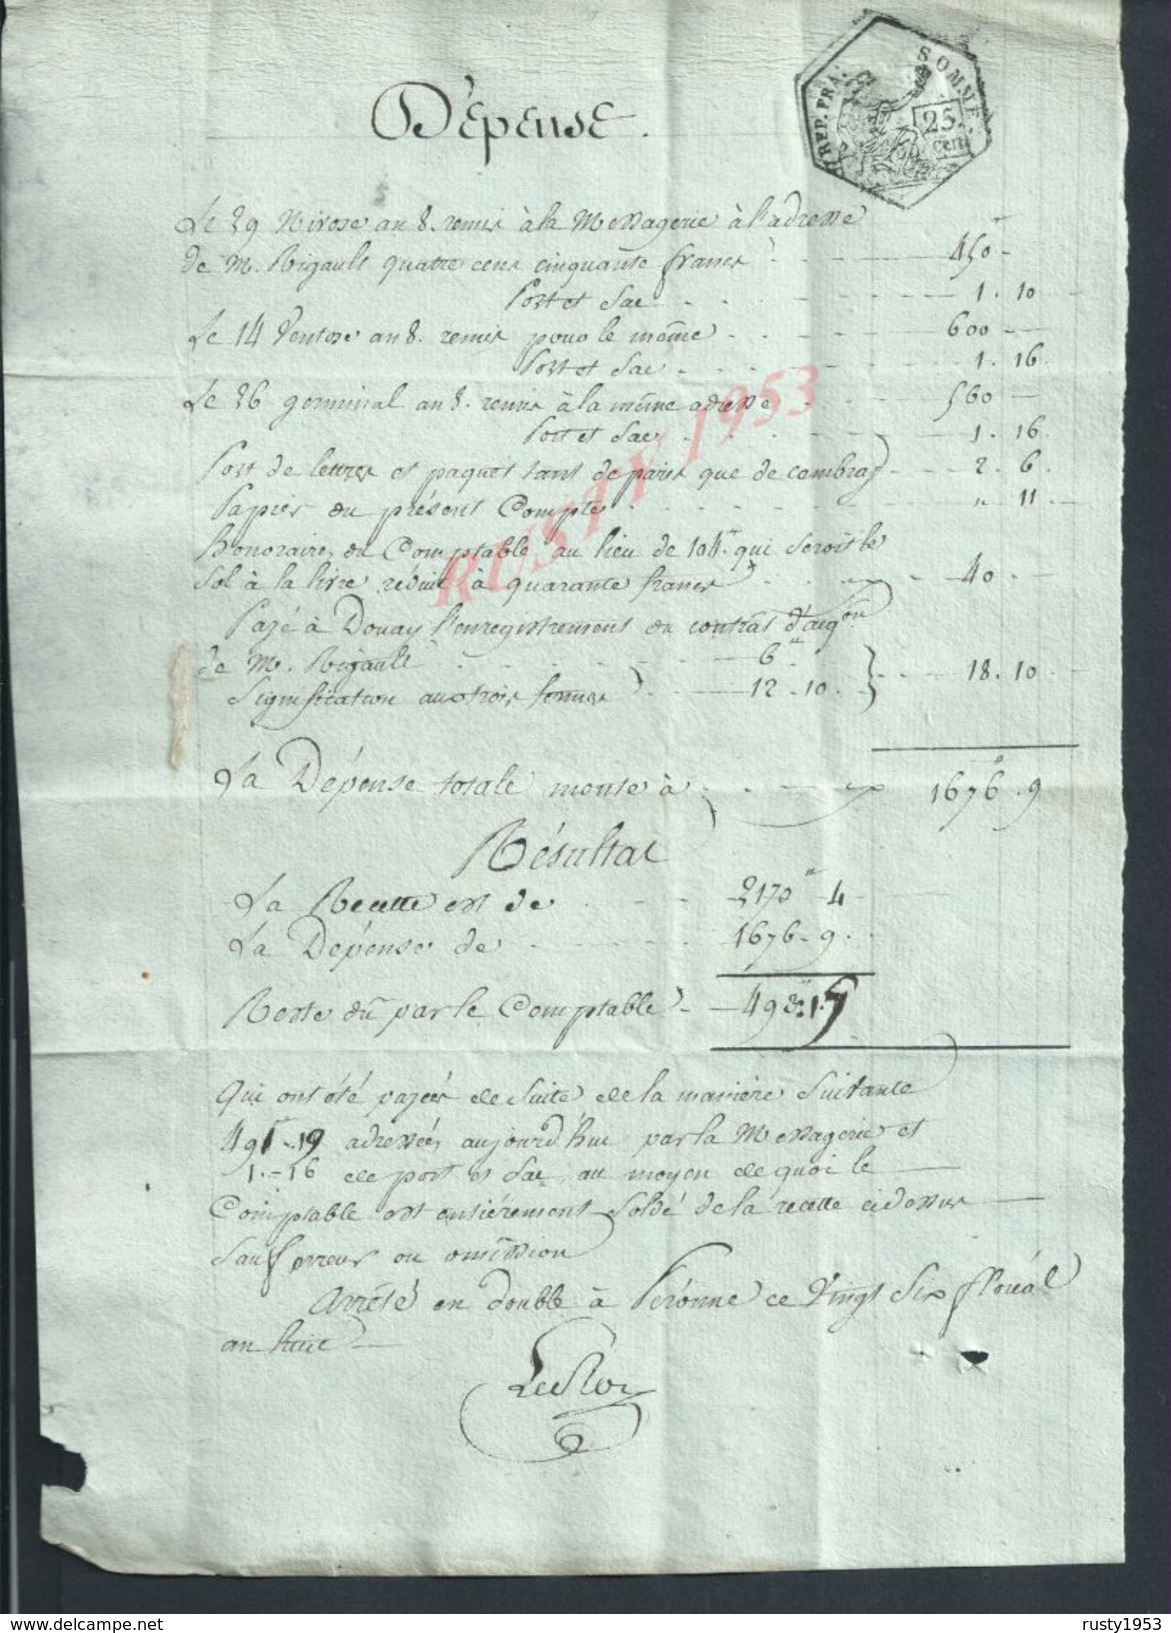 REP. FRA. SOMME.
25. Cen.
Dépense.
Le 29 Nivose an 8. remis à la Messagerie à l'adresse
de M. Rigault quatre cens cinquante francs 450
Port et Sac 1. 10
Le 14 Ventose an 8. remis pour le même 600
Port et Sac 1. 16
Le 26 germinal an 8. remis à la même adresse 560
Port et Sac 1. 16
Port de lettres et paquets tant de paris que de Cambray 2. 6
Papier du présent Compte " 11
honoraires du Comptable au lieu de 104 qui seroit le
Sol à la livre réduit à quarante francs 40
Payé à Douay l'enregistrement du contrat
de M. Rigault 6"
Signification aux trois fermiers 12. 10. 18. 10
La Dépense totale monte à 1676. 9
Résultat
La Recette est de 2170" 4
La Dépense de 1676. 9.
Reste dû par le Comptable 493. 15
Qui ont été payées de suite de la manière Suivante
491-19 adressées aujourd'hui par la Messagerie et
1.-16 de port et Sac au moyen de quoi le
Comptable est entièrement Soldé de la recette cidessus
Sauf erreur ou omission
Arrêté en double à Péronne ce Vingt Six floréal
an huit
LeRoy
RUSTY 1953
www.delcampe.net
rusty1953